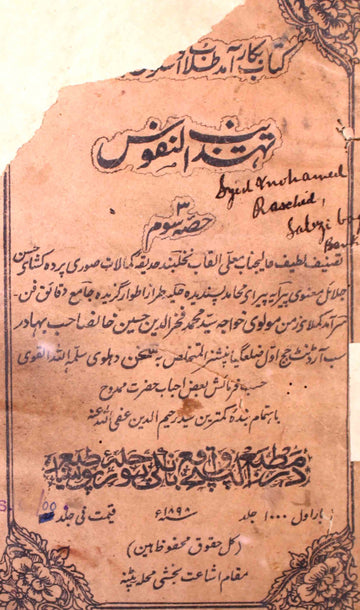 کتاب کارآمد طلاب
تہذیب النفوس
Syed Mohamed
Raschid,
Sabzi b
Ban
حصہ سوم ۳
تصنیف لطیف عالیجناب معلی القاب نخلبند حدیقہ کمالات صوری پردہ کشای حسن
جلائل معنوی پیرایہ پیرای محامد پسندیدہ حلیہ طراز اطوار گزیدہ جامع دقائق فن
سرآمد کملای زمن مولوی خواجہ سید محمد فخر الدین حسین خانصاحب بہادر
سب آرڈنٹ جج اول ضلع گیا پنشنر المتخلص بہ سخن دہلوی سلمہ اللہ القوی
حسب فرمائش بعض احباب حضرت ممدوح
باہتمام بندہ کمترین سید رحیم الدین عفی عنہ
در مطبع الپنچ واقع بانکی پور طبع
بار اول ۱۰۰۰ جلد ۱۸۹۸ء قیمت فی جلد
(کل حقوق محفوظ ہین)
مقام اشاعت بخشی محلہ پٹنہ